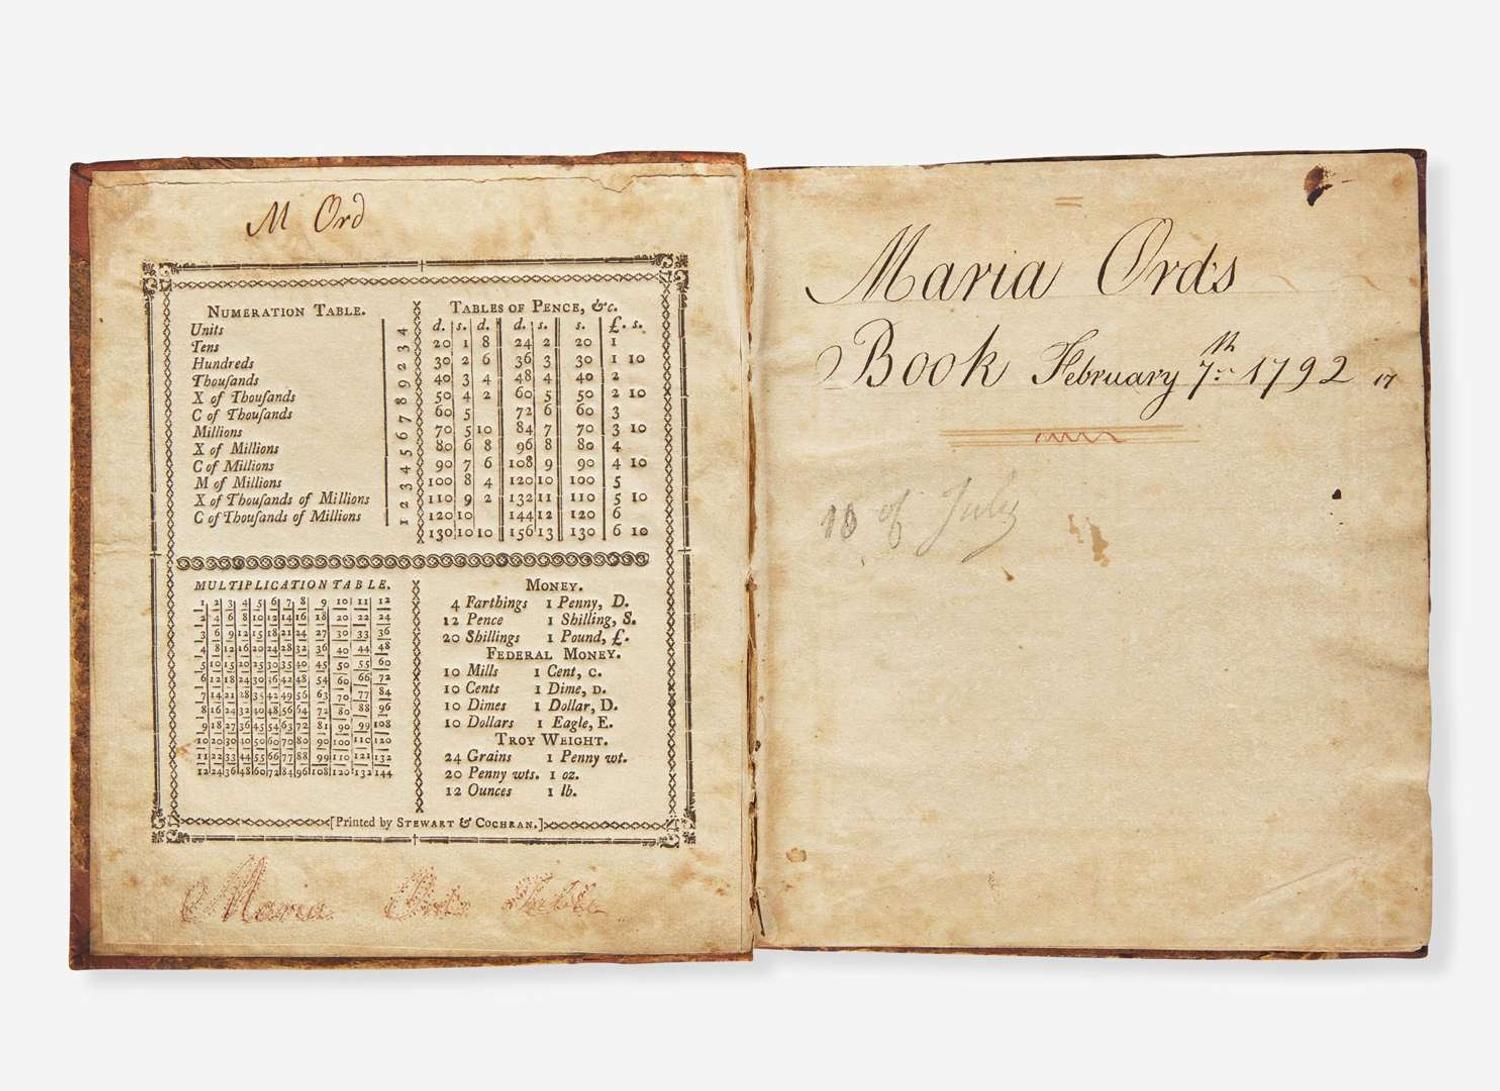 M Ord
NUMERATION TABLE.
Units
Tens
Hundreds
Thouſands
X of Thouſands
C of Thouſands
Millions
X of Millions
C of Millions
M of Millions
X of Thouſands of Millions
C of Thouſands of Millions
1 2 3 4 5 6 7 8 9 2 3 4
TABLES OF PENCE, &c.
d. s. d. d. s. s. £. s.
20 1 8 24 2 20 1
30 2 6 36 3 30 1 10
40 3 4 48 4 40 2
50 4 2 60 5 50 2 10
60 5 72 6 60 3
70 5 10 84 7 70 3 10
80 6 8 96 8 80 4
90 7 6 108 9 90 4 10
100 8 4 120 10 100 5
110 9 2 132 11 110 5 10
120 10 144 12 120 6
130 10 10 156 13 130 6 10
MULTIPLICATION TABLE.
1 2 3 4 5 6 7 8 9 10 11 12
2 4 6 8 10 12 14 16 18 20 22 24
3 6 9 12 15 18 21 24 27 30 33 36
4 8 12 16 20 24 28 32 36 40 44 48
5 10 15 20 25 30 35 40 45 50 55 60
6 12 18 24 30 36 42 48 54 60 66 72
7 14 21 28 35 42 49 56 63 70 77 84
8 16 24 32 40 48 56 64 72 80 88 96
9 18 27 36 45 54 63 72 81 90 99 108
10 20 30 40 50 60 70 80 90 100 110 120
11 22 33 44 55 66 77 88 99 110 121 132
12 24 36 48 60 72 84 96 108 120 132 144
MONEY.
4 Farthings 1 Penny, D.
12 Pence 1 Shilling, S.
20 Shillings 1 Pound, £.
FEDERAL MONEY.
10 Mills 1 Cent, C.
10 Cents 1 Dime, D.
10 Dimes 1 Dollar, D.
10 Dollars 1 Eagle, E.
TROY WEIGHT.
24 Grains 1 Penny wt.
20 Penny wts. 1 oz.
12 Ounces 1 lb.
[Printed by STEWART & COCHRAN.]
Maria Ords Table
Maria Ords
Book February 7th 1792 17
10 of July